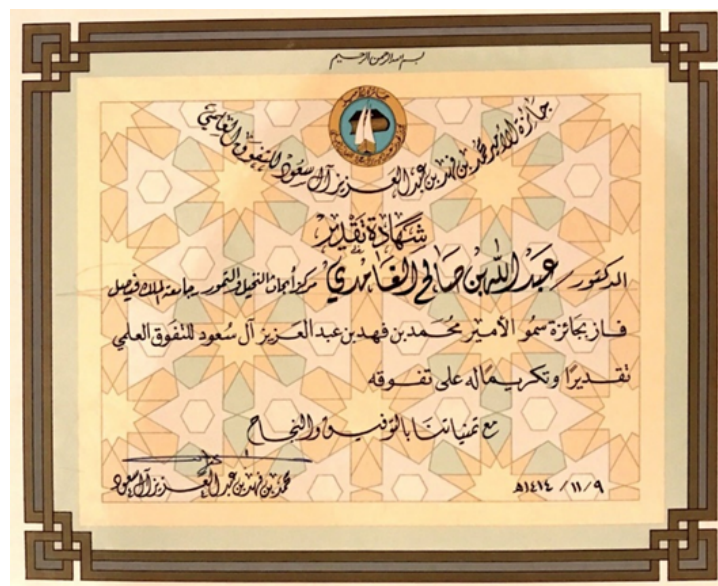 بسم الله الرحمن الرحيم
جائزة الأمير محمد بن فهد بن عبد العزيز آل سعود للتفوق العلمي
شهادة تقدير
الدكتور عبد الله بن صالح الغامدي مركز أبحاث النخيل والتمور جامعة الملك فيصل
فاز بجائزة سمو الأمير محمد بن فهد بن عبد العزيز آل سعود للتفوق العلمي
تقديرًا وتكريمًا له على تفوقه
مع تمنياتنا بالتوفيق والنجاح
محمد بن فهد بن عبد العزيز آل سعود
١٤١٤/١١/٩هـ